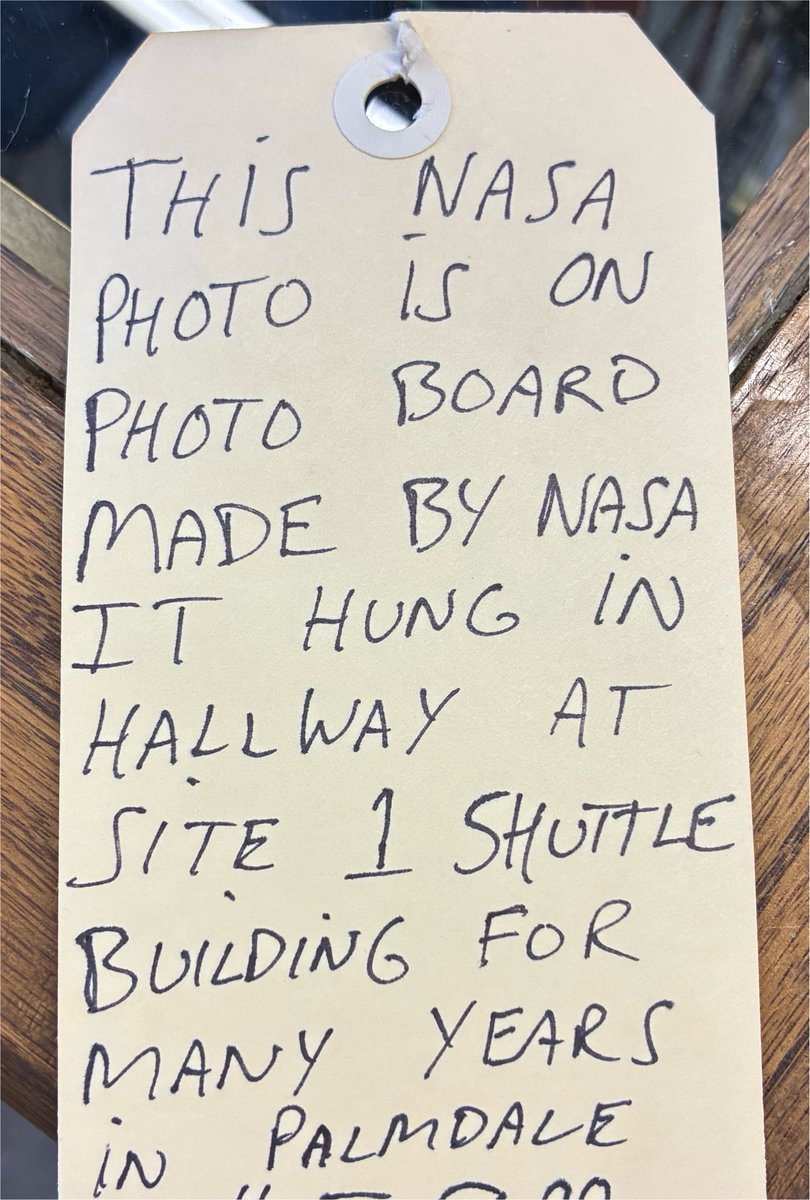 THIS NASA
PHOTO IS ON
PHOTO BOARD
MADE BY NASA
IT HUNG IN
HALLWAY AT
SITE 1 SHUTTLE
BUILDING FOR
MANY YEARS
IN PALMDALE